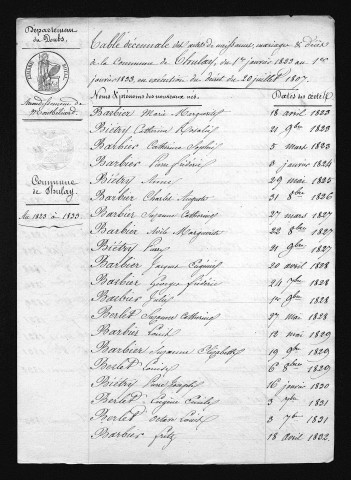 Département
du Doubs.
Arrondissement de
Montbéliard
Commune
de Thulay.
An 1823 à 1833
Table décennale des actes de naissances, mariages & Décès
de la Commune de Thulay, du 1er janvier 1823 au 1er
janvier 1833, en exécution du décret du 20 juillet 1807.
Noms & prénoms des nouveaux nés. Dates des actes
Barbier Marie Marguerite 18 avril 1823
Biétry Catherine 21 9bre 1823
Barbier Catherine Sophie 5 mars 1823
Barbier Pierre frédéric 3 janvier 1824
Biétry Anne 29 mai 1825
Barbier Charles Auguste 31 8bre 1826
Barbier Suzanne Catherine 27 mars 1827
Barbier Marguerite 22 8bre 1827
Biétry Pierre 21 9bre 1827
Barbier Jacques Eugène 20 avril 1828
Barbier Georges frédéric 24 7bre 1828
Barbier Julie 14 9bre 1828
Berlet Suzanne Catherine 27 mai 1828
Barbier Louis 12 mai 1829
Barbier Suzanne Elizabeth 19 9bre 1829
Berlet Louise 6 1829
Biétry Pierre Joseph 16 janvier 1830
Berlet Eugène 3 1831
Berlet Louis 3 7bre 1831
Barbier fritz 18 avril 1832.